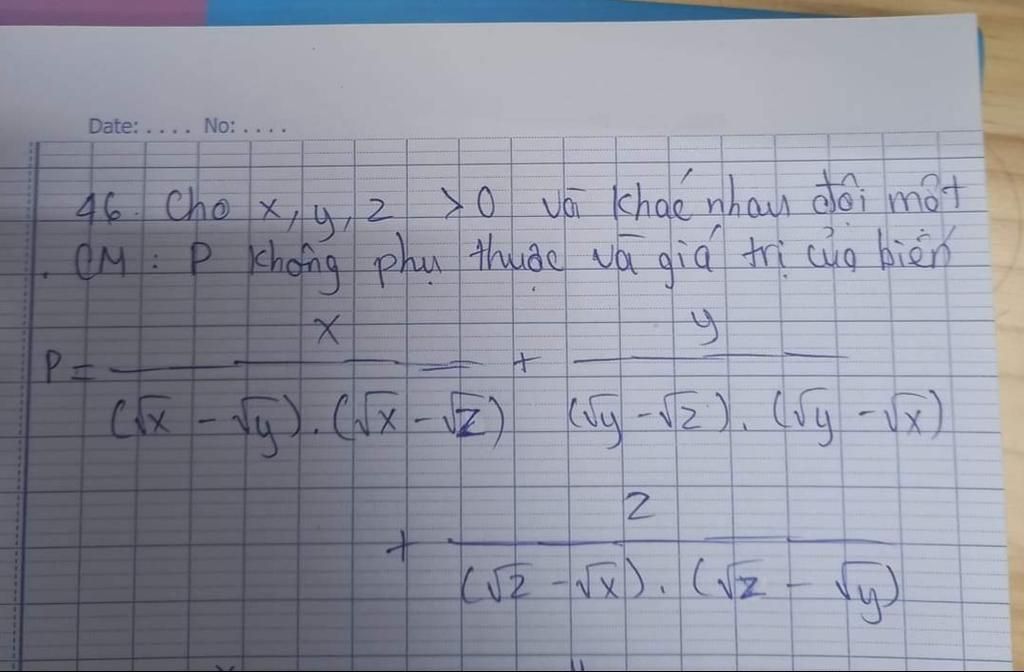 Date: .... No: ....
46. Cho x, y, z > 0 và khác nhau đôi một
. CM : P không phụ thuộc và giá trị của biến
P = x / ((√x - √y) . (√x - √z)) + y / ((√y - √z) . (√y - √x))
+ z / ((√z - √x) . (√z - √y))